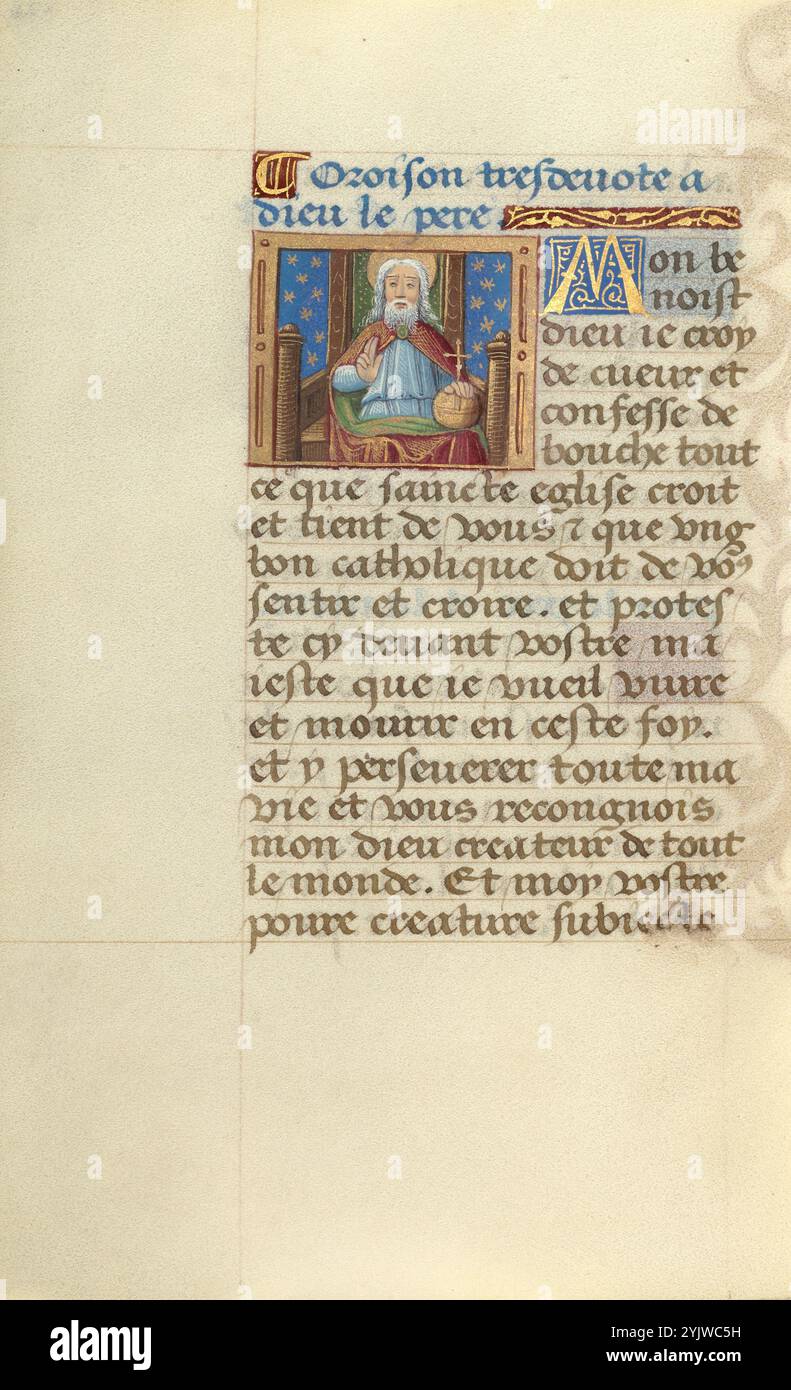 ¶ Oroison tresdevote a
dieu le pere.
Mon be
noist
dieu ie croy
de cueur et
confesse de
bouche tout
ce que saincte eglise croit
et tient de vous ⁊ que vng
bon catholique doit de voꝰ
sentir et croire. et protes
te cy deuant vostre ma
ieste que ie vueil viure
et mourir en ceste foy.
et y perseuerer toute ma
vie et vous recongnois
mon dieu createur de tout
le monde. Et moy vostre
poure creature subiecte
alamy
alamy
Image ID: 2YJWC5H
www.alamy.com